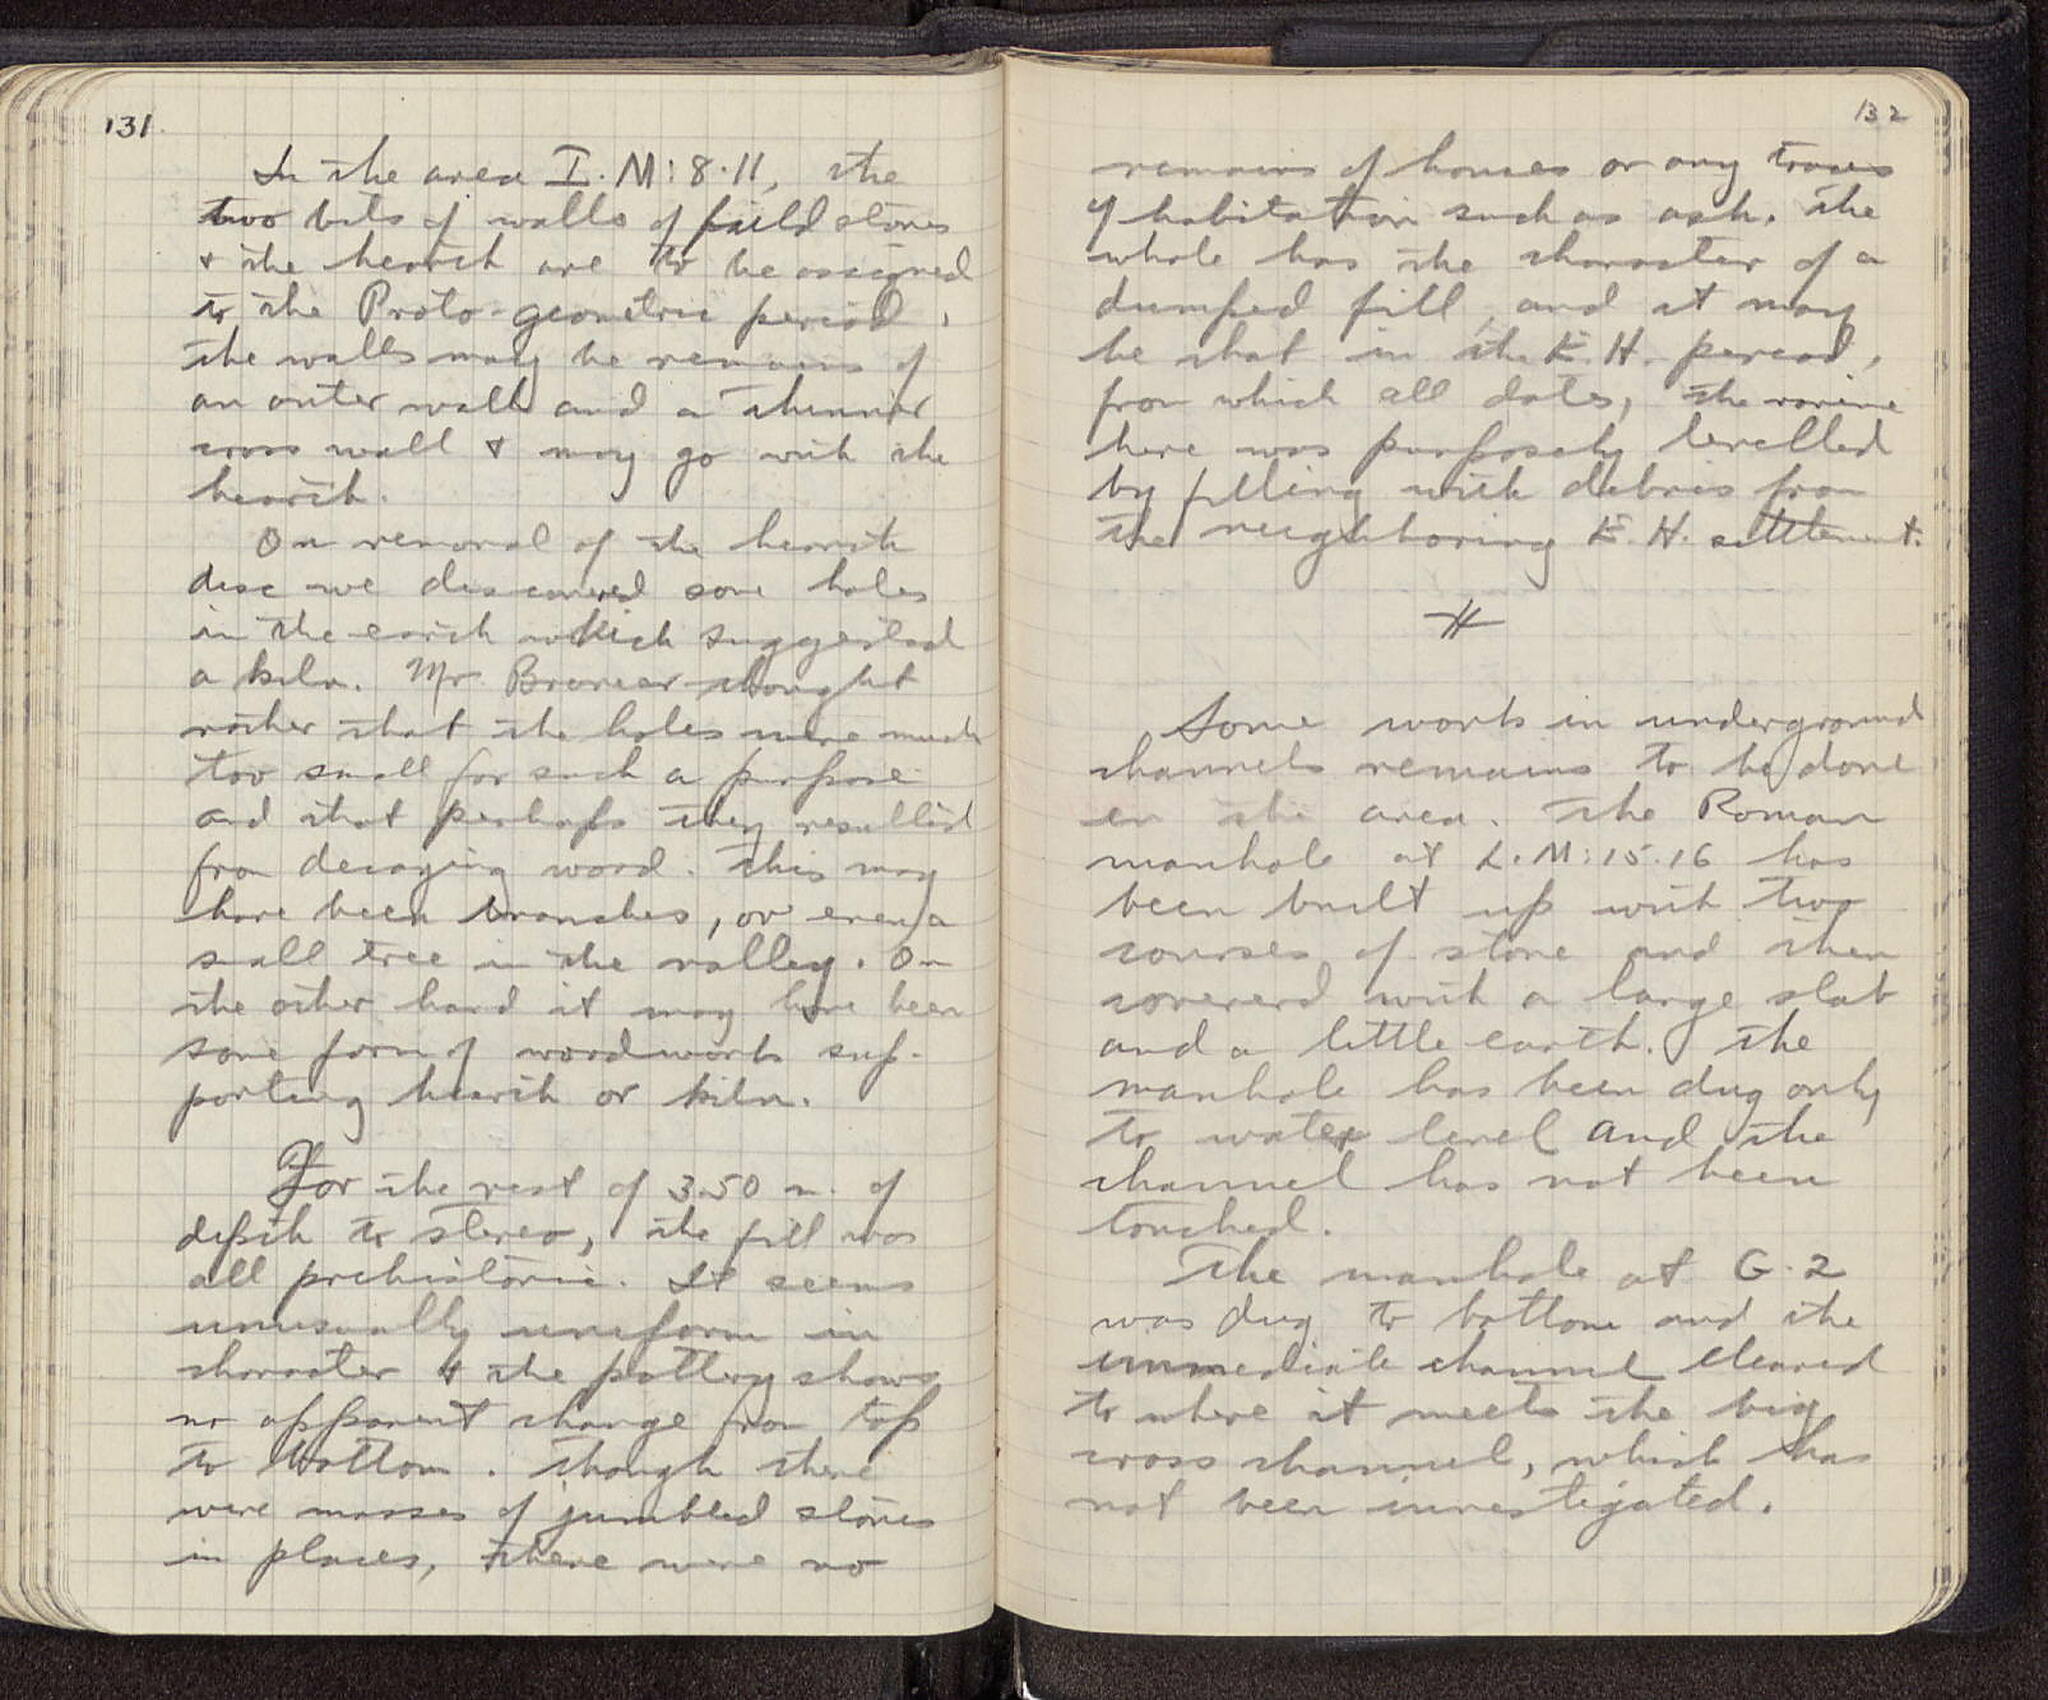 131
In the area I.M:8.11, the
two bits of walls of field stones
& the hearth are to be assigned
to the Proto-geometric period.
The walls may be remains of
an outer wall and a thinner
cross wall & may go with the
hearth.
On removal of the hearth
disc we discovered some holes
in the earth which suggested
a kiln. Mr. Broneer thought
rather that the holes were much
too small for such a purpose
and that perhaps they resulted
from decaying wood. This may
have been branches, or even a
small tree in the valley. On
the other hand it may have been
some form of woodwork sup-
porting hearth or kiln.
For the rest of 3.50 m. of
depth to stereo, the fill was
all prehistoric. It seems
unusually uniform in
character & the pottery shows
no apparent change from top
to bottom. Though there
were masses of jumbled stones
in places, there were no
132
remains of houses or any traces
of habitation such as ash. The
whole has the character of a
dumped fill, and it may
be that in the E.H. period,
from which all dates, the ravine
here was purposely levelled
by filling with debris from
the neighboring E.H. settlement.
Some work in underground
channels remains to be done
in the area. The Roman
manhole at L.M:15.16 has
been built up with two
courses of stone and then
covererd with a large slab
and a little earth. The
manhole has been dug only
to water level and the
channel has not been
touched.
The manhole at G.2
was dug to bottom and the
immediate channel cleared
to where it meets the big
cross channel, which has
not been investigated.